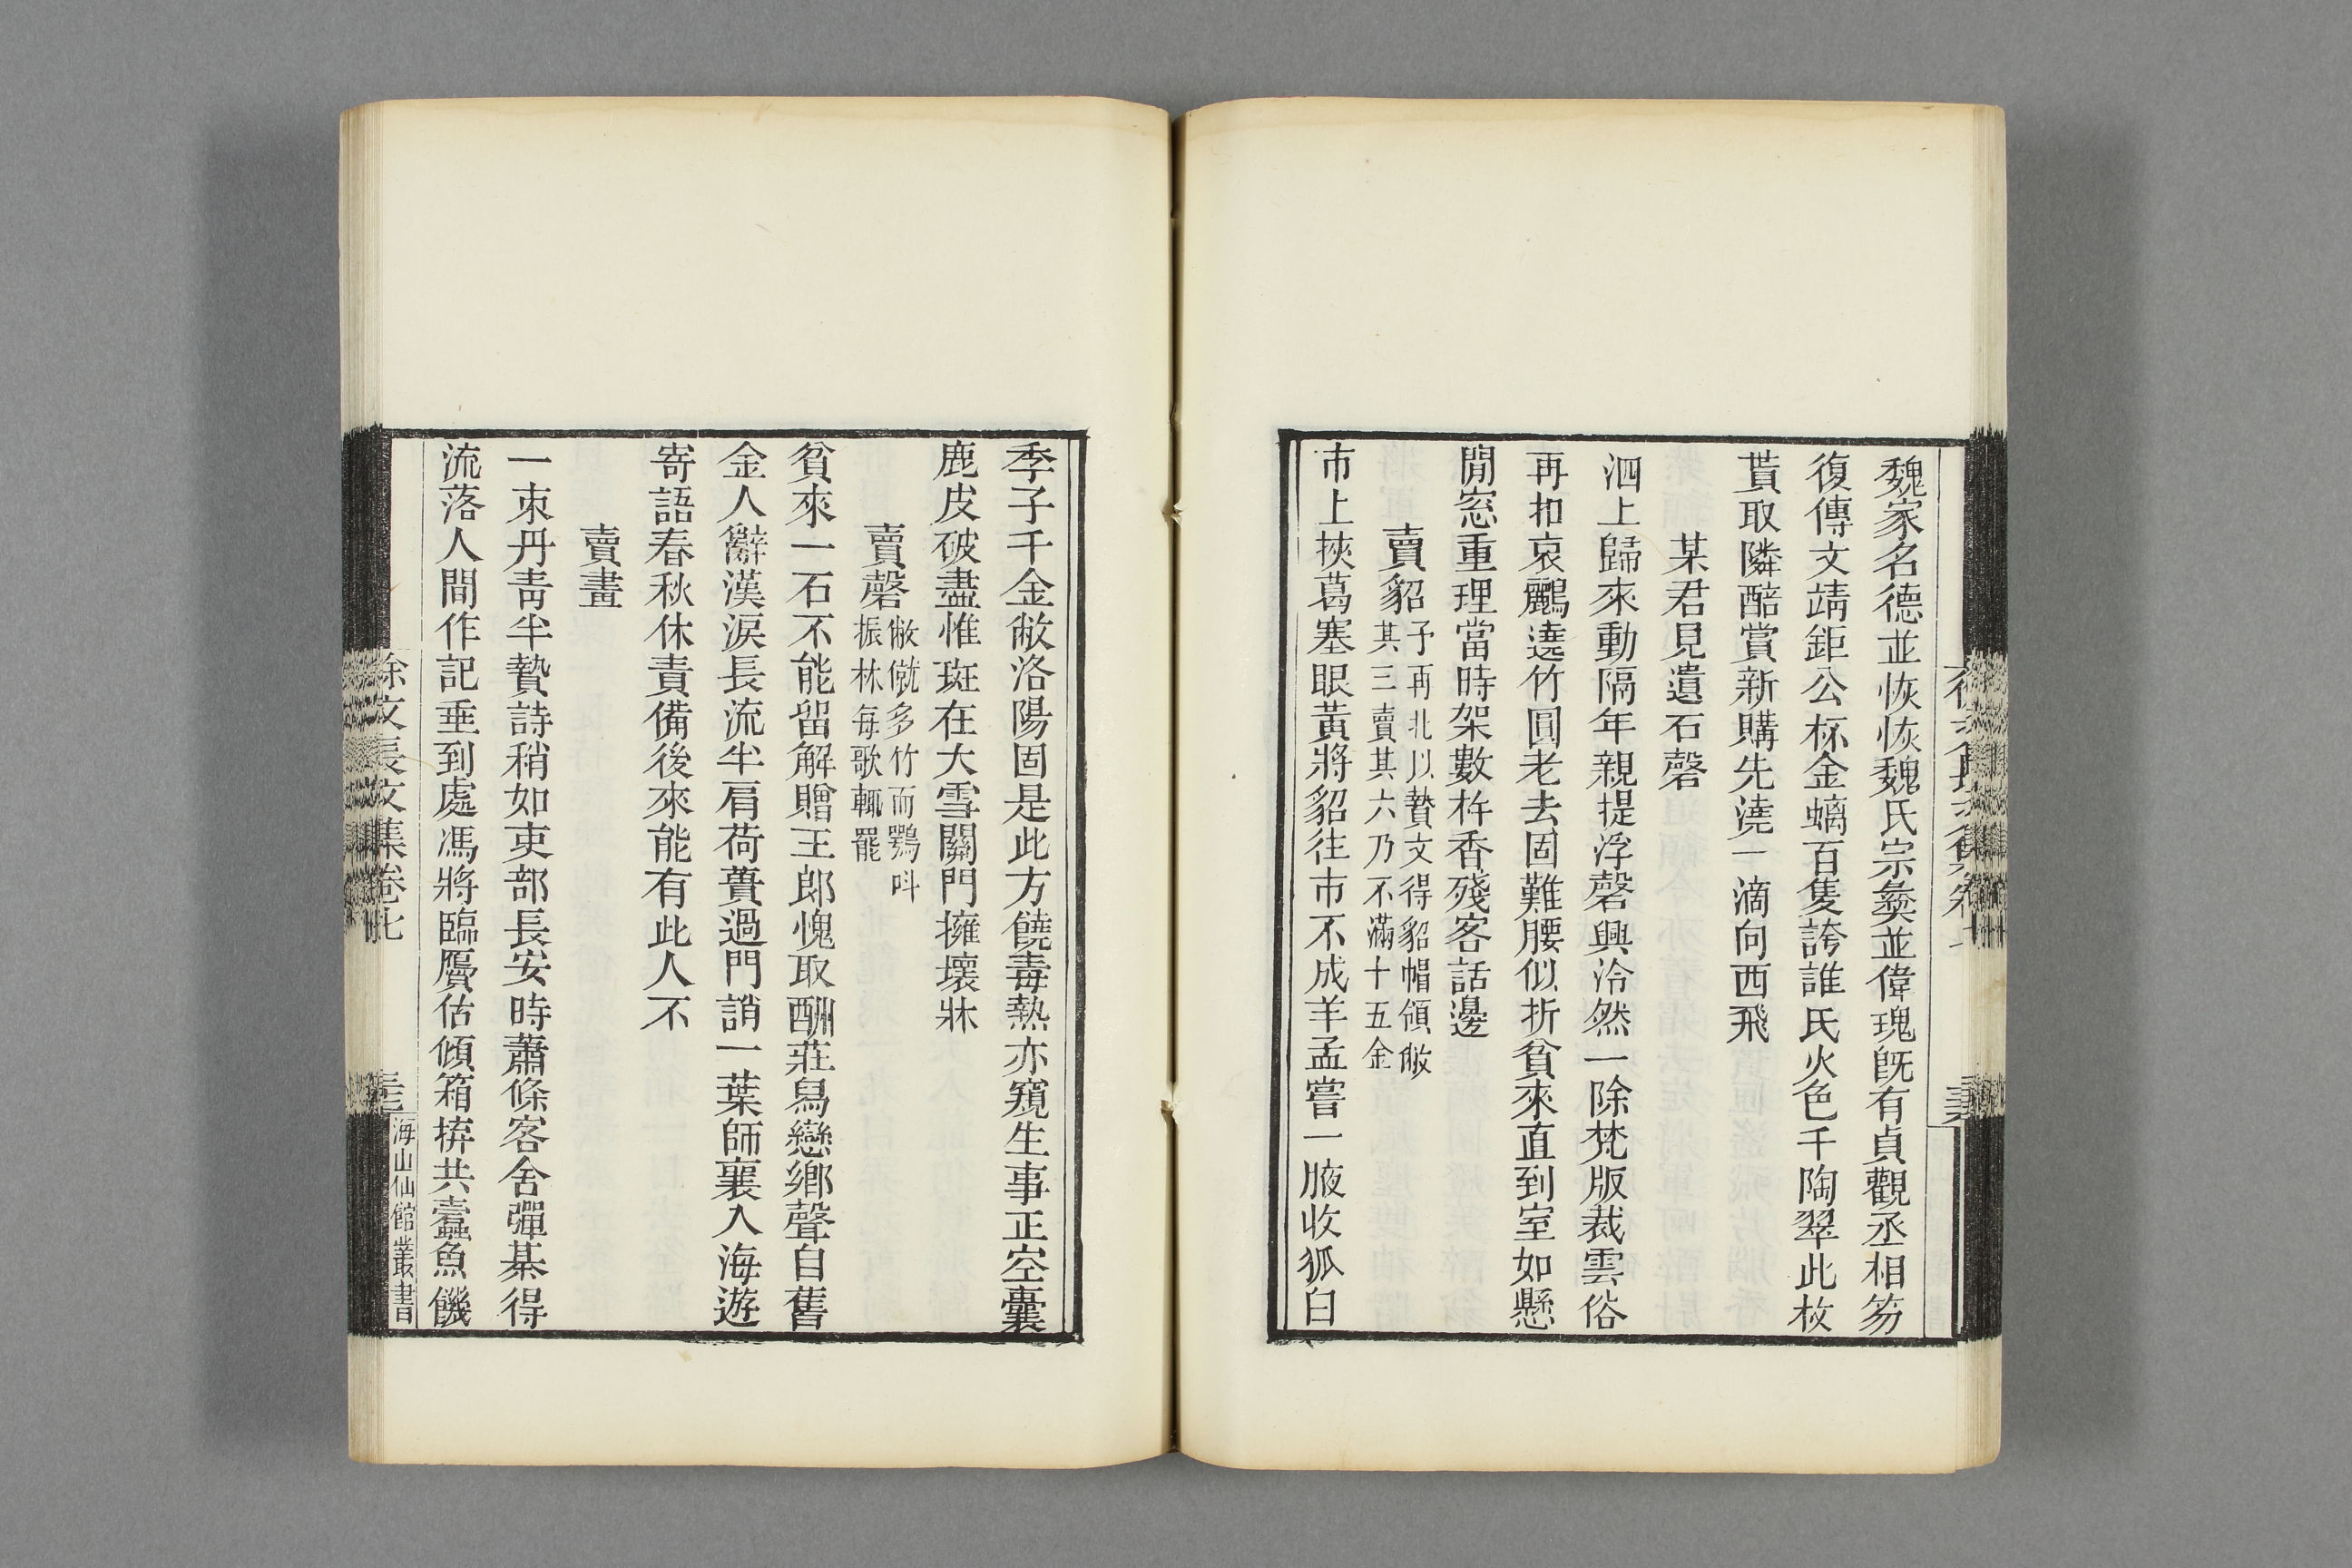 魏家名德並恢恢魏氏宗彝並偉瑰旣有貞觀丞相笏
復傳文靖鉅公杯金螭百隻誇誰氏火色千陶翠此枚
貰取隣醅賞新購先澆一滴向西飛
某君見遺石磬
泗上歸來動隔年親提浮磬興泠然一除梵版裁雲俗
再扣哀鸝遶竹圓老去固難腰似折貧來直到室如懸
閒窓重理當時架數杵香殘客話邊
賣貂予再北以贄文得貂帽領敝
其三賣其六乃不滿十五金
市上挾葛塞眼黃將貂往市不成羊孟嘗一腋收狐白
季子千金敝洛陽固是此方饒毒熱亦窺生事正空囊
鹿皮破盡惟斑在大雪關門擁壞牀
賣磬敝僦多竹而鶚呌
振林每歌輒罷
貧來一石不能留解贈王郎愧取酬莊舄戀鄉聲自舊
金人辭漢淚長流半肩荷蕢過門誚一葉師襄入海遊
寄語春秋休責備後來能有此人不
賣畫
一束丹靑半贄詩稍如吏部長安時蕭條客舍彈棊得
流落人間作記垂到處馮將臨贋估傾箱拚共蠹魚饑
徐文長文集卷七
海山仙館叢書